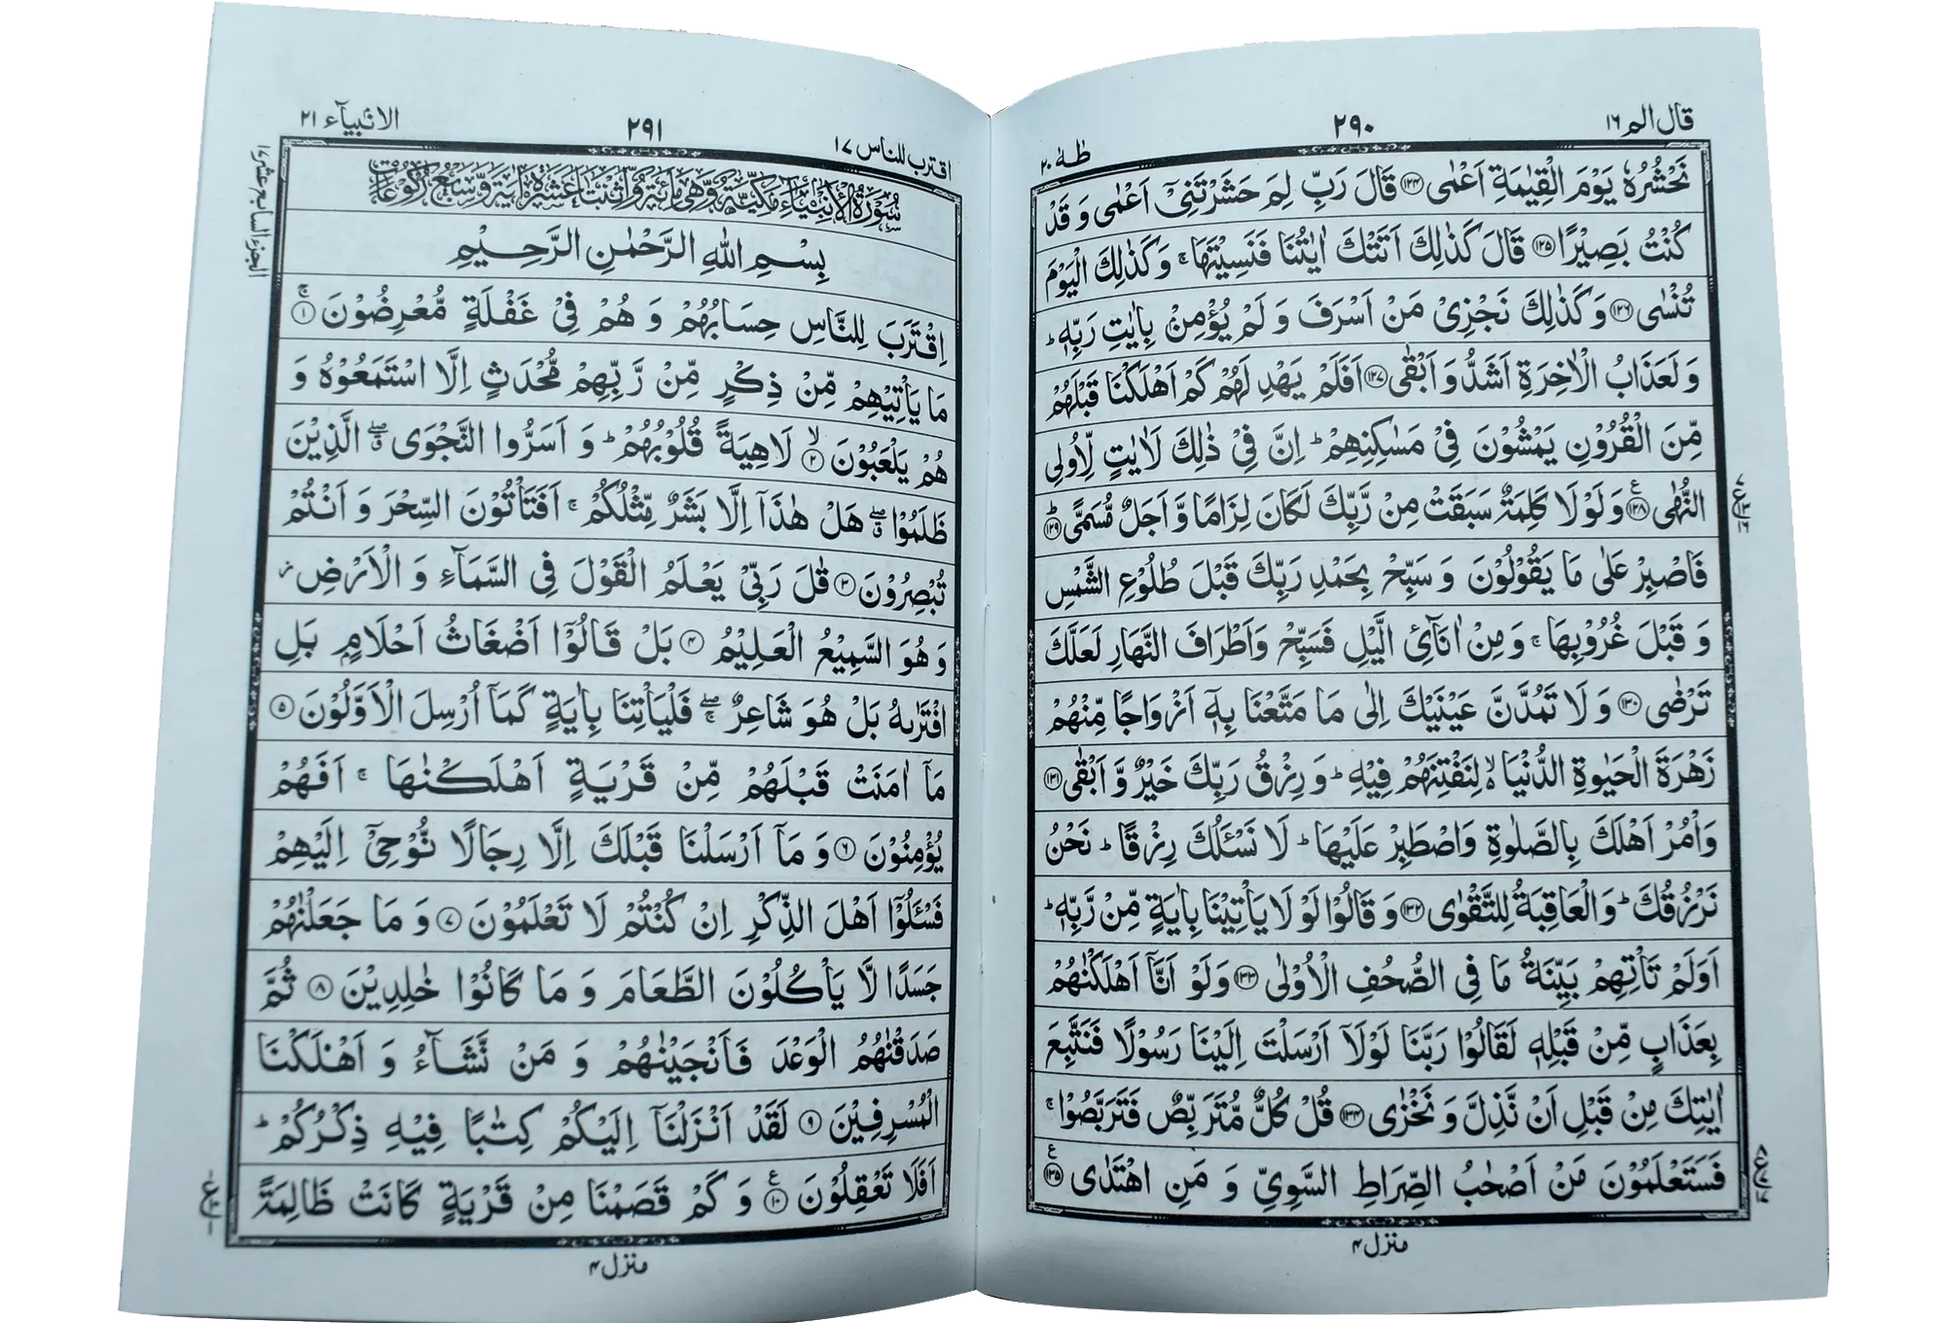 قال الم ١٦
٢٩٠
طٰهٰ ٢٠
نَحْشُرُهٗ يَوْمَ الْقِيٰمَةِ اَعْمٰى ۝١٢٤ قَالَ رَبِّ لِمَ حَشَرْتَنِيْٓ اَعْمٰى وَ قَدْ
كُنْتُ بَصِيْرًا ۝١٢٥ قَالَ كَذٰلِكَ اَتَتْكَ اٰيٰتُنَا فَنَسِيْتَهَا ۚ وَكَذٰلِكَ الْيَوْمَ
تُنْسٰى ۝١٢٦ وَكَذٰلِكَ نَجْزِيْ مَنْ اَسْرَفَ وَ لَمْ يُؤْمِنْۢ بِاٰيٰتِ رَبِّهٖ ؕ
وَ لَعَذَابُ الْاٰخِرَةِ اَشَدُّ وَ اَبْقٰى ۝١٢٧ اَفَلَمْ يَهْدِ لَهُمْ كَمْ اَهْلَكْنَا قَبْلَهُمْ
مِّنَ الْقُرُوْنِ يَمْشُوْنَ فِيْ مَسٰكِنِهِمْ ؕ اِنَّ فِيْ ذٰلِكَ لَاٰيٰتٍ لِّاُولِى
النُّهٰى ۝١٢٨ وَلَوْ لَا كَلِمَةٌ سَبَقَتْ مِنْ رَّبِّكَ لَكَانَ لِزَامًا وَّ اَجَلٌ مُّسَمًّى ۝١٢٩
فَاصْبِرْ عَلٰى مَا يَقُوْلُوْنَ وَ سَبِّحْ بِحَمْدِ رَبِّكَ قَبْلَ طُلُوْعِ الشَّمْسِ
وَ قَبْلَ غُرُوْبِهَا ۚ وَ مِنْ اٰنَآئِ الَّيْلِ فَسَبِّحْ وَاَطْرَافَ النَّهَارِ لَعَلَّكَ
تَرْضٰى ۝١٣٠ وَ لَا تَمُدَّنَّ عَيْنَيْكَ اِلٰى مَا مَتَّعْنَا بِهٖٓ اَزْوَاجًا مِّنْهُمْ
زَهْرَةَ الْحَيٰوةِ الدُّنْيَا ۙ لِنَفْتِنَهُمْ فِيْهِ ؕ وَ رِزْقُ رَبِّكَ خَيْرٌ وَّ اَبْقٰى ۝١٣١
وَاْمُرْ اَهْلَكَ بِالصَّلٰوةِ وَاصْطَبِرْ عَلَيْهَا ؕ لَا نَسْـَٔلُكَ رِزْقًا ؕ نَحْنُ
نَرْزُقُكَ ؕ وَالْعَاقِبَةُ لِلتَّقْوٰى ۝١٣٢ وَ قَالُوْا لَوْ لَا يَاْتِيْنَا بِاٰيَةٍ مِّنْ رَّبِّهٖ ؕ
اَوَلَمْ تَاْتِهِمْ بَيِّنَةُ مَا فِى الصُّحُفِ الْاُوْلٰى ۝١٣٣ وَلَوْ اَنَّآ اَهْلَكْنٰهُمْ
بِعَذَابٍ مِّنْ قَبْلِهٖ لَقَالُوْا رَبَّنَا لَوْلَآ اَرْسَلْتَ اِلَيْنَا رَسُوْلًا فَنَتَّبِعَ
اٰيٰتِكَ مِنْ قَبْلِ اَنْ نَّذِلَّ وَ نَخْزٰى ۝١٣٤ قُلْ كُلٌّ مُّتَرَبِّصٌ فَتَرَبَّصُوْا ۚ
فَسَتَعْلَمُوْنَ مَنْ اَصْحٰبُ الصِّرَاطِ السَّوِيِّ وَ مَنِ اهْتَدٰى ۝١٣٥
منزل ٤
اقترب للناس ١٧
٢٩١
الانبيآء ٢١
الجزء السابع عشر ١٧
سُوْرَةُ الْاَنْبِيَآءِ مَكِّيَّةٌ وَّهِيَ مِائَةٌ وَّاثْنَتَا عَشْرَةَ اٰيَةً وَّسَبْعُ رُكُوْعَاتٍ
بِسْمِ اللّٰهِ الرَّحْمٰنِ الرَّحِيْمِ
اِقْتَرَبَ لِلنَّاسِ حِسَابُهُمْ وَ هُمْ فِيْ غَفْلَةٍ مُّعْرِضُوْنَ ۝١
مَا يَاْتِيْهِمْ مِّنْ ذِكْرٍ مِّنْ رَّبِّهِمْ مُّحْدَثٍ اِلَّا اسْتَمَعُوْهُ وَ
هُمْ يَلْعَبُوْنَ ۝٢ لَاهِيَةً قُلُوْبُهُمْ ؕ وَ اَسَرُّوا النَّجْوَى ۖ الَّذِيْنَ
ظَلَمُوْا ۖ هَلْ هٰذَآ اِلَّا بَشَرٌ مِّثْلُكُمْ ۚ اَفَتَاْتُوْنَ السِّحْرَ وَ اَنْتُمْ
تُبْصِرُوْنَ ۝٣ قٰلَ رَبِّيْ يَعْلَمُ الْقَوْلَ فِى السَّمَآءِ وَ الْاَرْضِ ؗ
وَ هُوَ السَّمِيْعُ الْعَلِيْمُ ۝٤ بَلْ قَالُوْٓا اَضْغَاثُ اَحْلَامٍۭ بَلِ
افْتَرٰىهُ بَلْ هُوَ شَاعِرٌ ۖۚ فَلْيَاْتِنَا بِاٰيَةٍ كَمَآ اُرْسِلَ الْاَوَّلُوْنَ ۝٥
مَآ اٰمَنَتْ قَبْلَهُمْ مِّنْ قَرْيَةٍ اَهْلَكْنٰهَا ۚ اَفَهُمْ
يُؤْمِنُوْنَ ۝٦ وَ مَآ اَرْسَلْنَا قَبْلَكَ اِلَّا رِجَالًا نُّوْحِيْٓ اِلَيْهِمْ
فَسْـَٔلُوْٓا اَهْلَ الذِّكْرِ اِنْ كُنْتُمْ لَا تَعْلَمُوْنَ ۝٧ وَ مَا جَعَلْنٰهُمْ
جَسَدًا لَّا يَاْكُلُوْنَ الطَّعَامَ وَ مَا كَانُوْا خٰلِدِيْنَ ۝٨ ثُمَّ
صَدَقْنٰهُمُ الْوَعْدَ فَاَنْجَيْنٰهُمْ وَ مَنْ نَّشَآءُ وَ اَهْلَكْنَا
الْمُسْرِفِيْنَ ۝٩ لَقَدْ اَنْزَلْنَآ اِلَيْكُمْ كِتٰبًا فِيْهِ ذِكْرُكُمْ ؕ
اَفَلَا تَعْقِلُوْنَ ۝١٠ وَ كَمْ قَصَمْنَا مِنْ قَرْيَةٍ كَانَتْ ظَالِمَةً
منزل ٤